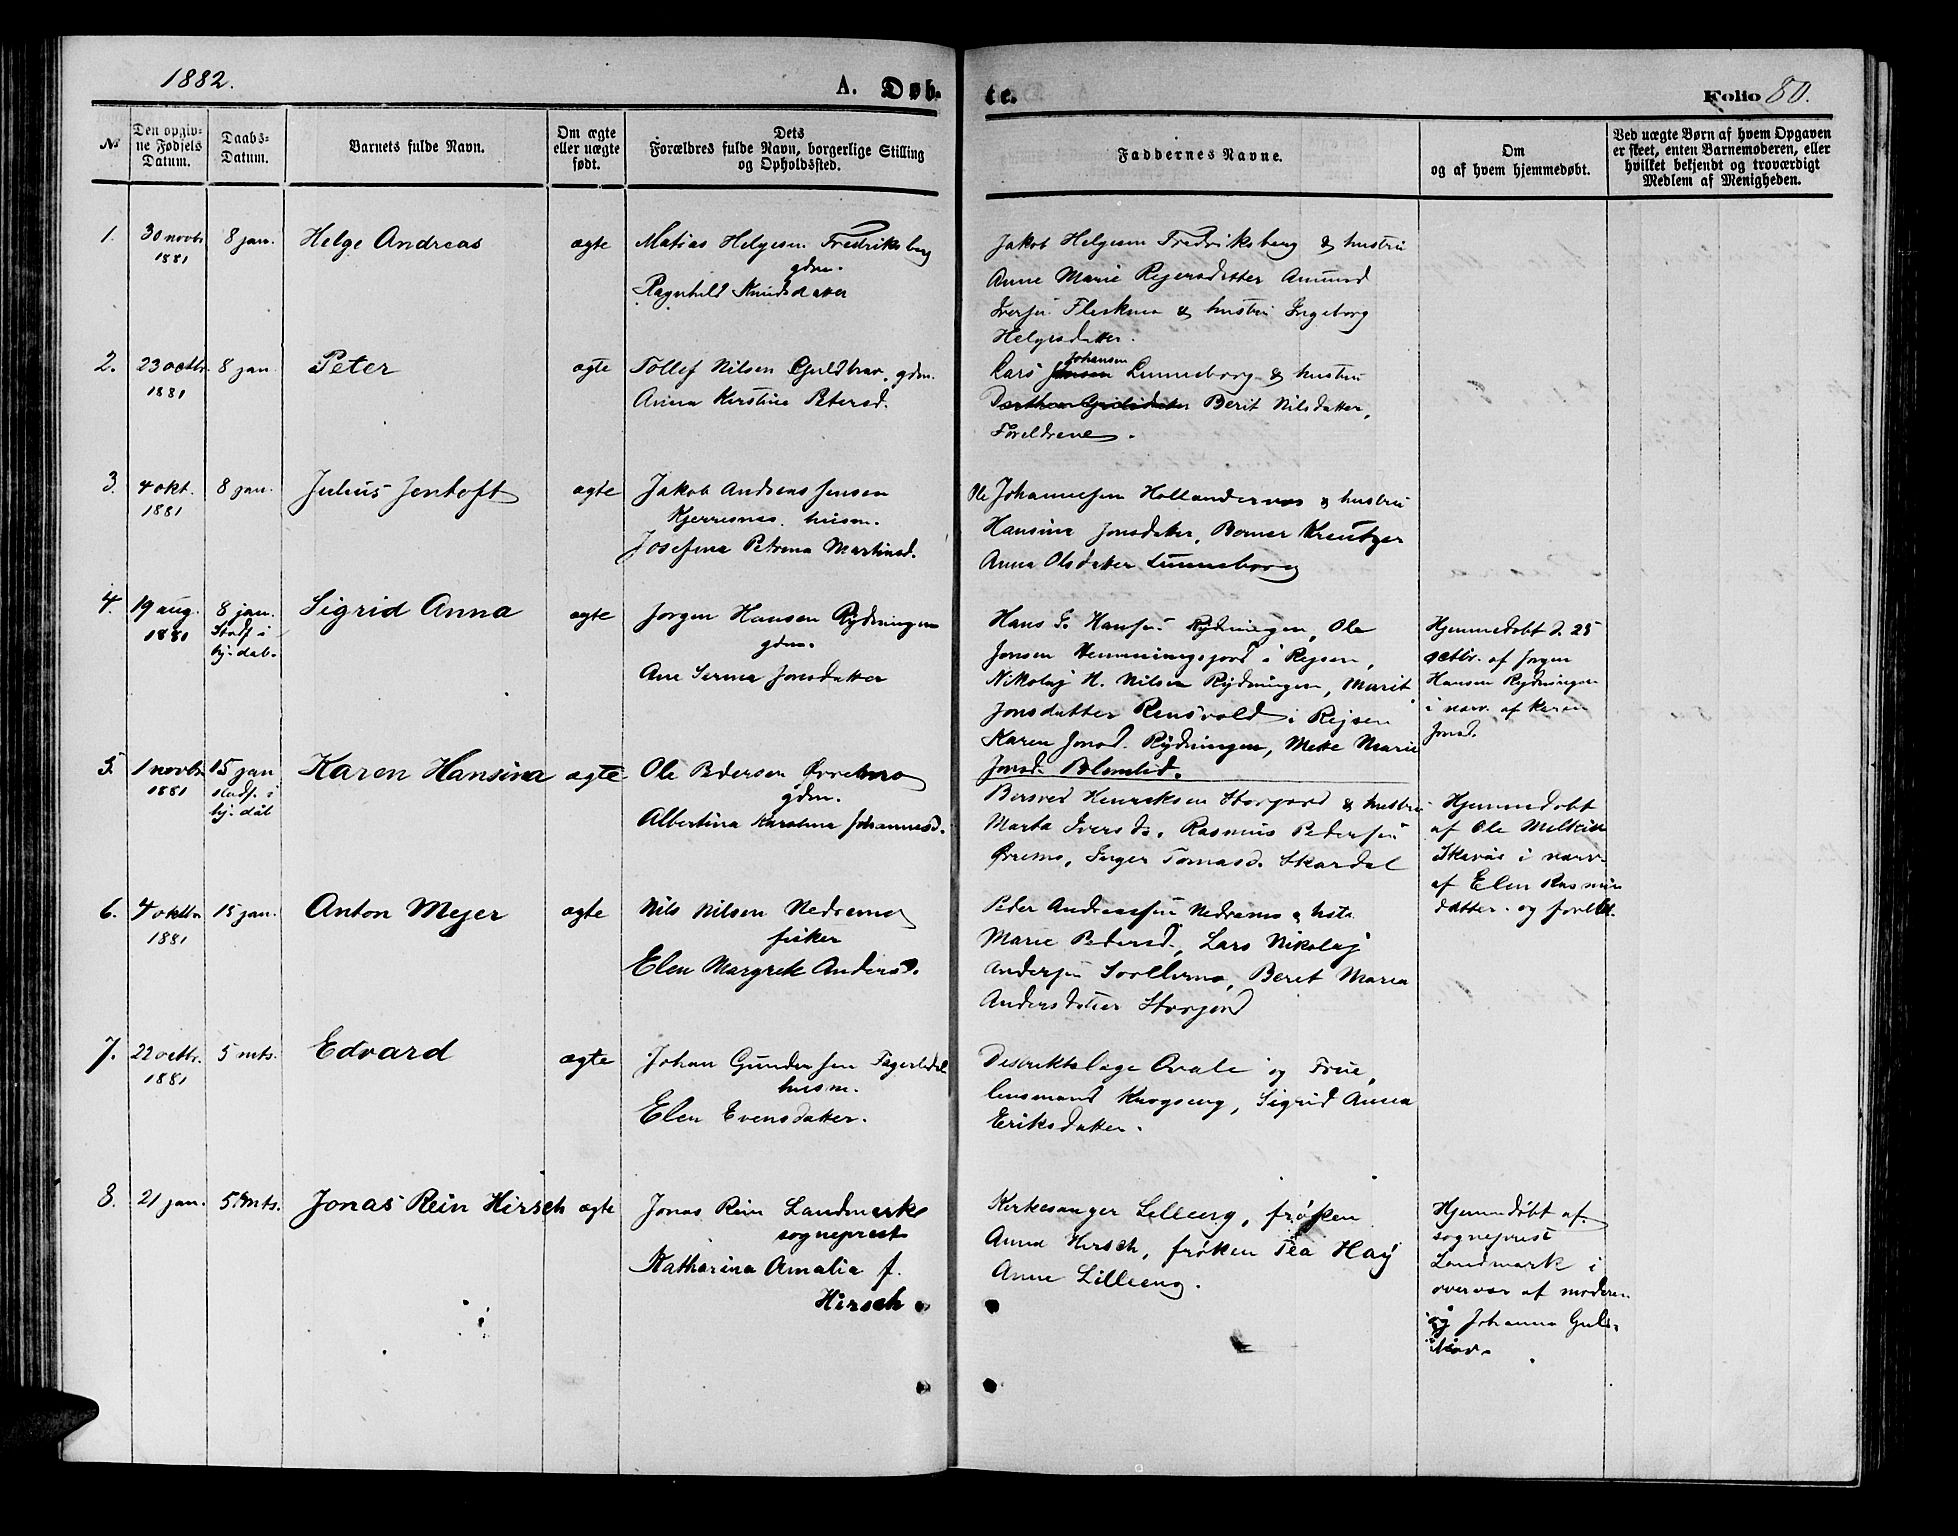 1882.
A. Døb-
te.
Folio 80.
№
Den opgiv-
ne Fødsels
Datum.
Daabs-
Datum.
Barnets fulde Navn.
Om ægte
eller uægte
født.
Dets
Forældres fulde Navn, borgerlige Stilling
og Opholdssted.
Faddernes Navne.
Om
og af hvem hjemmedøbt.
Ved uægte Børn af hvem Opgaven
er skeet, enten Barnemoderen, eller
hvilket bekjendt og troværdigt
Medlem af Menigheden.
1. 30 novbr 1881
8 jan.
Helge Andreas
ægte
Matias Helgesen Fredriksberg
gdm.
Ragnhild Knudsdatter
Jakob Helgesen Fredriksberg & hustru
Anne Marie Rejersdatter Amund
Iversen Fleskmo & hustru Ingeborg
Helgesdatter.
2. 23 octbr. 1881
8 jan
Peter
ægte
Tollef Nilsen Guldhav. gdm.
Anna Kirstine Petersd.
Lars Johansen Lunneborg & hustru
Berit Nilsdatter,
Foreldrene.
3. 4 okt. 1881
8 jan.
Julius Jentoft
ægte
Jakob Andreas Jensen
Kjerresnes. husm.
Josefina Petrina Martinsd.
Ole Johannesen Hollendernes & hustru
Hansina Jonsdatter, Bomer Kreutzer
Anna Olsdatter Lunneborg
4. 19 aug. 1881
8 jan.
Stadf. i
hj. dåb.
Sigrid Anna
ægte
Jørgen Hansen Rydningen
gdm.
Ane Serina Jonsdatter
Hans J. Hansen Rydningen, Ole
Jonsen Hemmingsjord i Rejsen,
Nikolaj H. Nilsen Rydningen, Marit
Jonsdatter Rensvold i Rejsen
Karen Jonsd. Rydningen, Mette Marie
Jonsd.
Hjemmedøbt d. 25
octbr. af Jørgen
Hansen Rydningen
i nærv. af Karen
Jonsd.
5. 1 novbr 1881
15 jan
stadf. i
hj. dåb
Karen Hansina
ægte
Ole Pedersen Øvremo
gdm.
Albertina Karolina Johannesd.
Bersved Henriksen Storjord & hustru
Marta Iversd., Rasmus Pedersen
Øvremo, Inger Tomasd. Skardal
Hjemmedøbt
af Ole
i nærv.
af Elen Rasmus
datter. og foreld.
6. 4 oktbr 1881
15 jan.
Anton Mejer
ægte
Nils Nilsen Nedremo
fisker
Elen Margrete Andersd.
Peder Andreassen Nedremo & hst.
Marie Pedersd., Lars Nikolaj
Andersen Sollimo, Beret Maria
Andersdatter Storjord
7. 22 octbr. 1881
5 mts.
Edvard
ægte
Johan Gundersen Fagerlidal
husm.
Elen Evensdatter.
Distriktslæge Qvale og Frue,
lensmand Krogseng, Sigrid Anna
Eriksdatter.
8. 21 jan.
5. mts.
Jonas Rein Hirsch
ægte
Jonas Rein Landmark
sogneprest
Katharina Amalia f.
Hirsch
Kirkesanger Lilleeng, frøken
Anna Hirsch, frøken Tea Haÿ
Anne Lilleeng.
Hjemmedøbt af
sogneprest
Landmark i
overvær af moderen
og Johanna Guld-
hav.